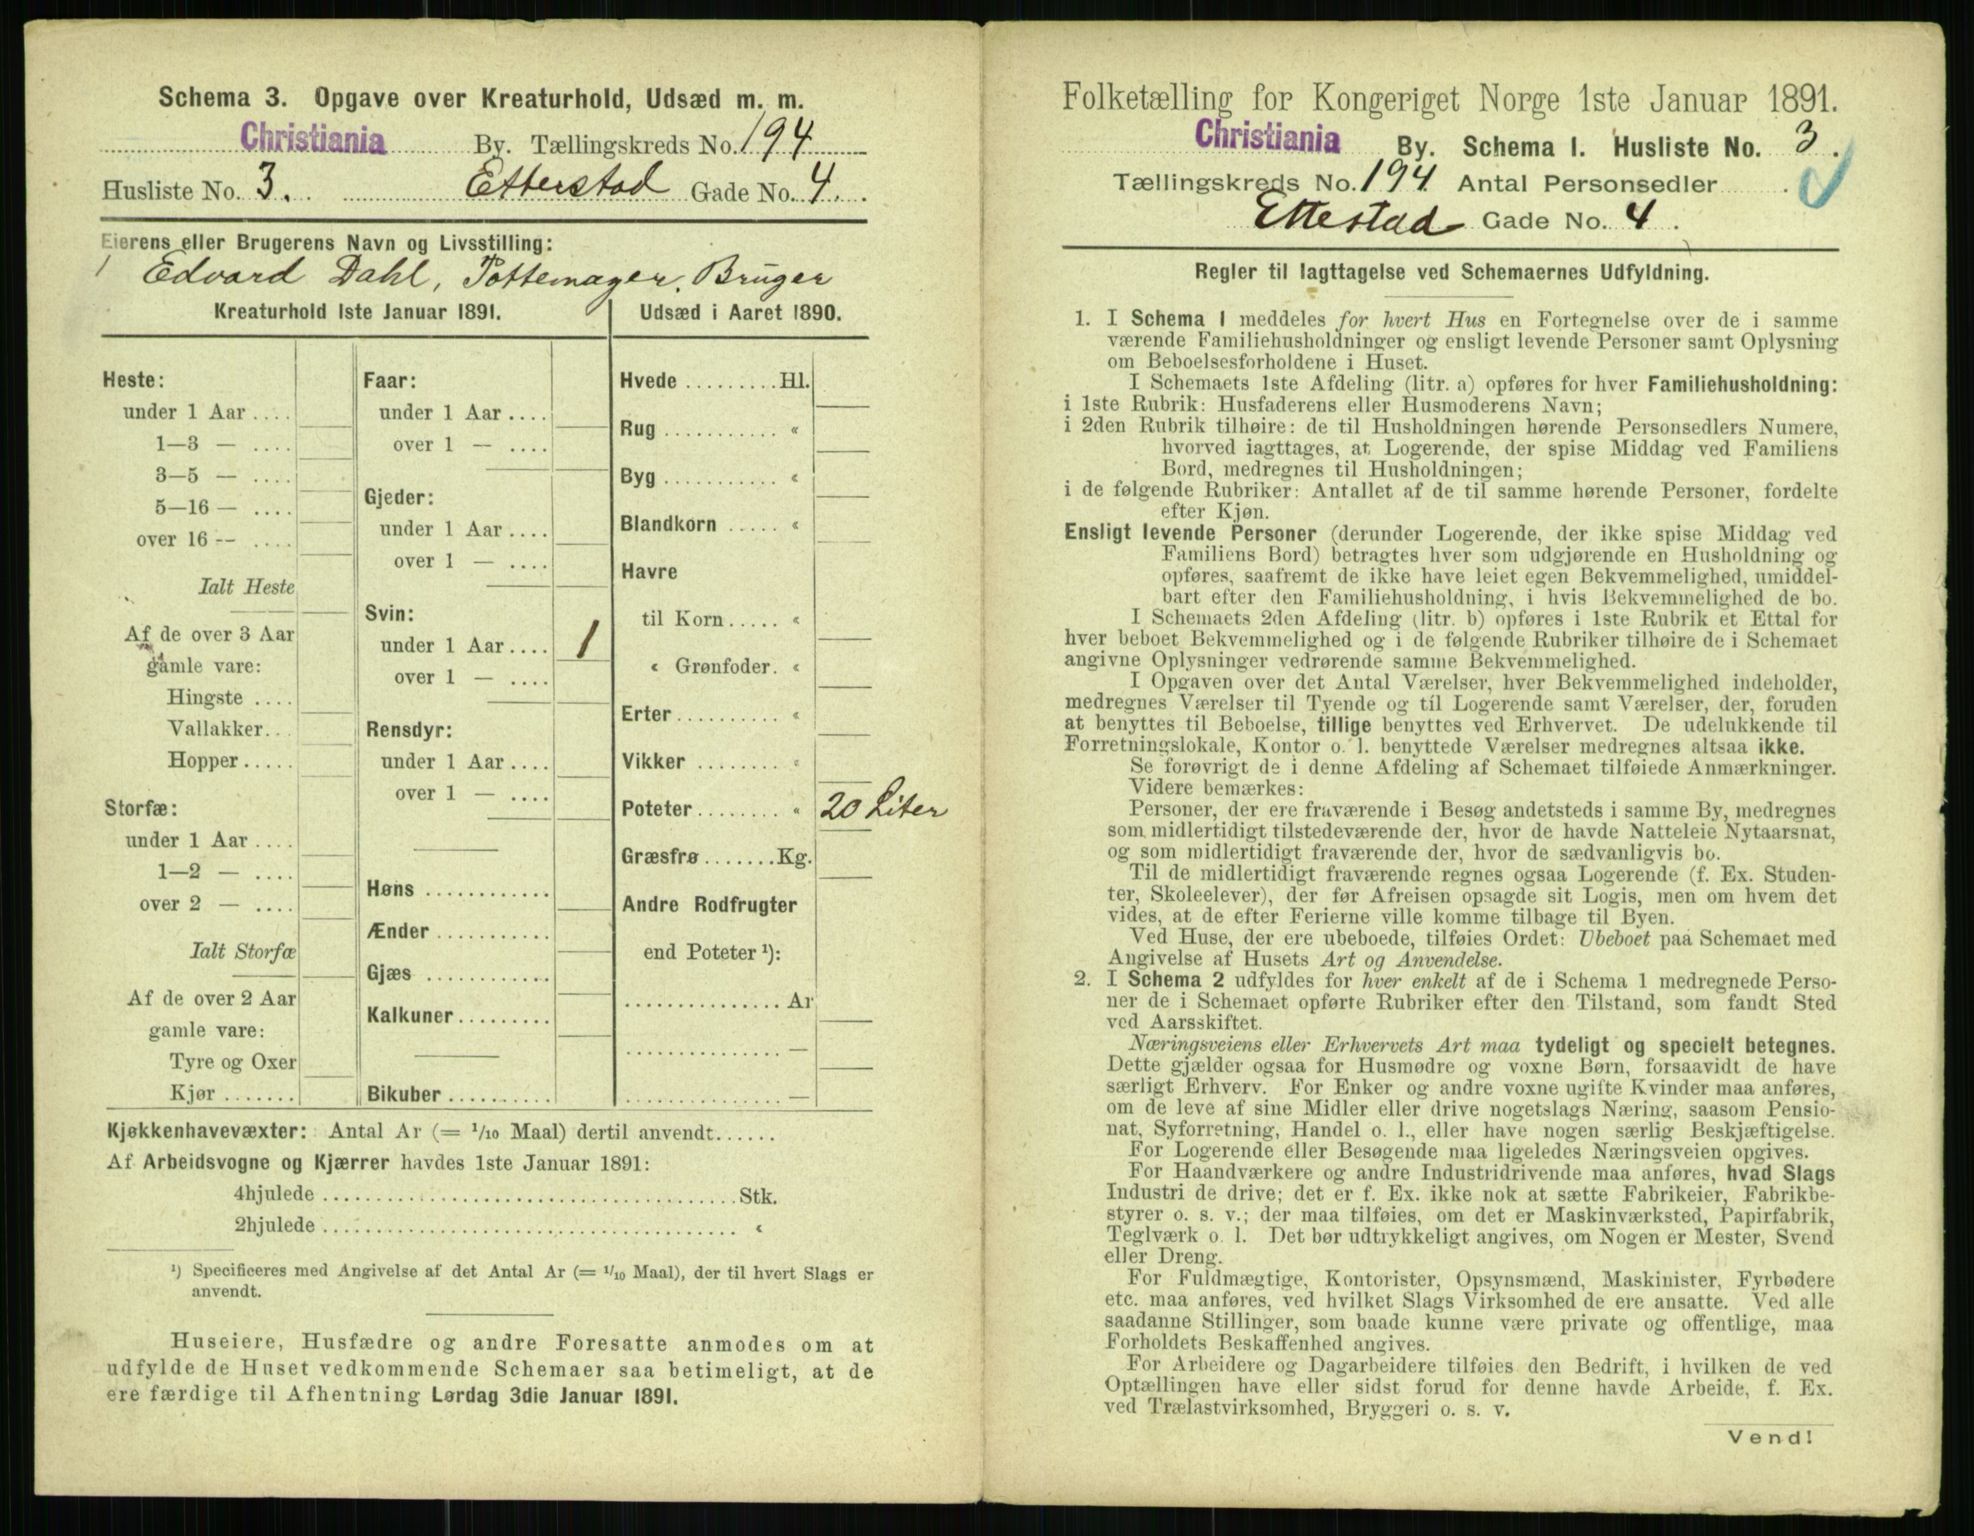 Schema 3. Opgave over Kreaturhold, Udsæd m. m.
Christiania By. Tællingskreds No. 194
Husliste No. 3. Etterstad Gade No. 4.
Eierens eller Brugerens Navn og Livsstilling:
Edvard Dahl, Pottemager, Bruger
Kreaturhold 1ste Januar 1891.
Heste:
under 1 Aar ....
1—3 — ....
3—5 — ....
5—16 — ....
over 16 -- ....
Ialt Heste
Af de over 3 Aar
gamle vare:
Hingste ....
Vallakker...
Hopper.....
Storfæ:
under 1 Aar ....
1—2 — ....
over 2 — ....
Ialt Storfæ
Af de over 2 Aar
gamle vare:
Tyre og Oxer
Kjør .......
Faar:
under 1 Aar ....
over 1 — ....
Gjeder:
under 1 Aar ....
over 1 — ....
Svin:
under 1 Aar .... 1
over 1 — ....
Rensdyr:
under 1 Aar ....
over 1 — ....
Høns ............
Ænder ...........
Gjæs ............
Kalkuner.........
Bikuber ..........
Udsæd i Aaret 1890.
Hvede .........Hl.
Rug ........... «
Byg ........... «
Blandkorn ..... «
Havre
til Korn..... «
« Grønfoder. «
Erter.......... «
Vikker ........ «
Poteter........ « 20 Liter
Græsfrø .......Kg.
Andre Rodfrugter
end Poteter ¹):
............... Ar
............... —
............... —
Kjøkkenhavevæxter: Antal Ar (= 1/10 Maal) dertil anvendt......
Af Arbeidsvogne og Kjærrer havdes 1ste Januar 1891:
4hjulede ........................................Stk.
2hjulede ........................................ «
¹) Specificeres med Angivelse af det Antal Ar (= 1/10 Maal), der til hvert Slags er
anvendt.
Huseiere, Husfædre og andre Foresatte anmodes om at
udfylde de Huset vedkommende Schemaer saa betimeligt, at de
ere færdige til Afhentning Lørdag 3die Januar 1891.
Folketælling for Kongeriget Norge 1ste Januar 1891.
Christiania By. Schema I. Husliste No. 3.
Tællingskreds No. 194 Antal Personsedler .
Ettestad Gade No. 4.
Regler til Iagttagelse ved Schemaernes Udfyldning.
1. I Schema I meddeles for hvert Hus en Fortegnelse over de i samme
værende Familiehusholdninger og ensligt levende Personer samt Oplysning
om Beboelsesforholdene i Huset.
I Schemaets 1ste Afdeling (litr. a) opføres for hver Familiehusholdning:
i 1ste Rubrik: Husfaderens eller Husmoderens Navn;
i 2den Rubrik tilhøire: de til Husholdningen hørende Personsedlers Numere,
hvorved iagttages, at Logerende, der spise Middag ved Familiens
Bord, medregnes til Husholdningen;
i de følgende Rubriker: Antallet af de til samme hørende Personer, fordelte
efter Kjøn.
Ensligt levende Personer (derunder Logerende, der ikke spise Middag ved
Familiens Bord) betragtes hver som udgjørende en Husholdning og
opføres, saafremt de ikke have leiet egen Bekvemmelighed, umiddel-
bart efter den Familiehusholdning, i hvis Bekvemmelighed de bo.
I Schemaets 2den Afdeling (litr. b) opføres i 1ste Rubrik et Ettal for
hver beboet Bekvemmelighed og i de følgende Rubriker tilhøire de i Schemaet
angivne Oplysninger vedrørende samme Bekvemmelighed.
I Opgaven over det Antal Værelser, hver Bekvemmelighed indeholder,
medregnes Værelser til Tyende og til Logerende samt Værelser, der, foruden
at benyttes til Beboelse, tillige benyttes ved Erhvervet. De udelukkende til
Forretningslokale, Kontor o. l. benyttede Værelser medregnes altsaa ikke.
Se forøvrigt de i denne Afdeling af Schemaet tilføiede Anmærkninger.
Videre bemærkes:
Personer, der ere fraværende i Besøg andetsteds i samme By, medregnes
som midlertidigt tilstedeværende der, hvor de havde Natteleie Nytaarsnat,
og som midlertidigt fraværende der, hvor de sædvanligvis bo.
Til de midlertidigt fraværende regnes ogsaa Logerende (f. Ex. Studen-
ter, Skoleelever), der før Afreisen opsagde sit Logis, men om hvem det
vides, at de efter Ferierne ville komme tilbage til Byen.
Ved Huse, der ere ubeboede, tilføies Ordet: Ubeboet paa Schemaet med
Angivelse af Husets Art og Anvendelse.
2. I Schema 2 udfyldes for hver enkelt af de i Schema 1 medregnede Perso-
ner de i Schemaet opførte Rubriker efter den Tilstand, som fandt Sted
ved Aarsskiftet.
Næringsveiens eller Erhvervets Art maa tydeligt og specielt betegnes.
Dette gjælder ogsaa for Husmødre og voxne Børn, forsaavidt de have
særligt Erhverv. For Enker og andre voxne ugifte Kvinder maa anføres,
om de leve af sine Midler eller drive nogetslags Næring, saasom Pensio-
nat, Syforretning, Handel o. l., eller have nogen særlig Beskjæftigelse.
For Logerende eller Besøgende maa ligeledes Næringsveien opgives.
For Haandværkere og andre Industridrivende maa anføres, hvad Slags
Industri de drive; det er f. Ex. ikke nok at sætte Fabrikeier, Fabrikbe-
styrer o. s. v.; der maa tilføies, om det er Maskinværksted, Papirfabrik,
Teglværk o. l. Det bør udtrykkeligt angives, om Nogen er Mester, Svend
eller Dreng.
For Fuldmægtige, Kontorister, Opsynsmænd, Maskinister, Fyrbødere
etc. maa anføres, ved hvilket Slags Virksomhed de ere ansatte. Ved alle
saadanne Stillinger, som baade kunne være private og offentlige, maa
Forholdets Beskaffenhed angives.
For Arbeidere og Dagarbeidere tilføies den Bedrift, i hvilken de ved
Optællingen have eller sidst forud for denne havde Arbeide, f. Ex.
ved Trælastvirksomhed, Bryggeri o. s. v.
Vend!